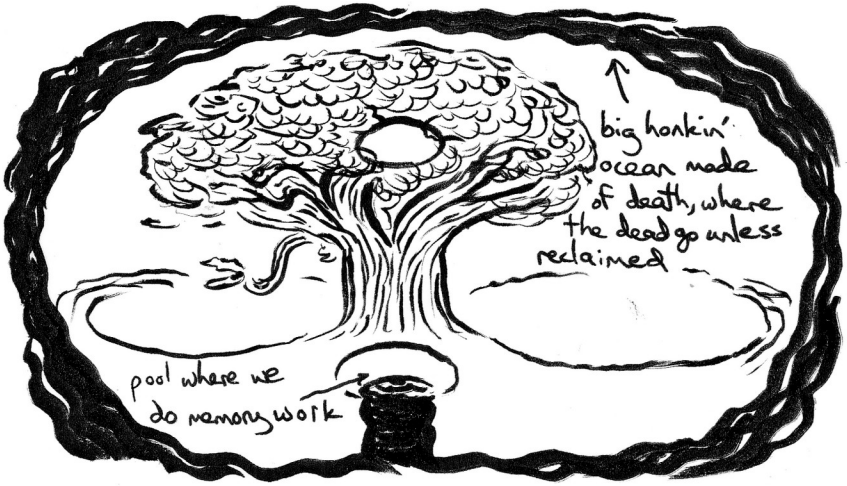 big honkin'
ocean made
of death, where
the dead go unless
reclaimed
pool where we
do memory work